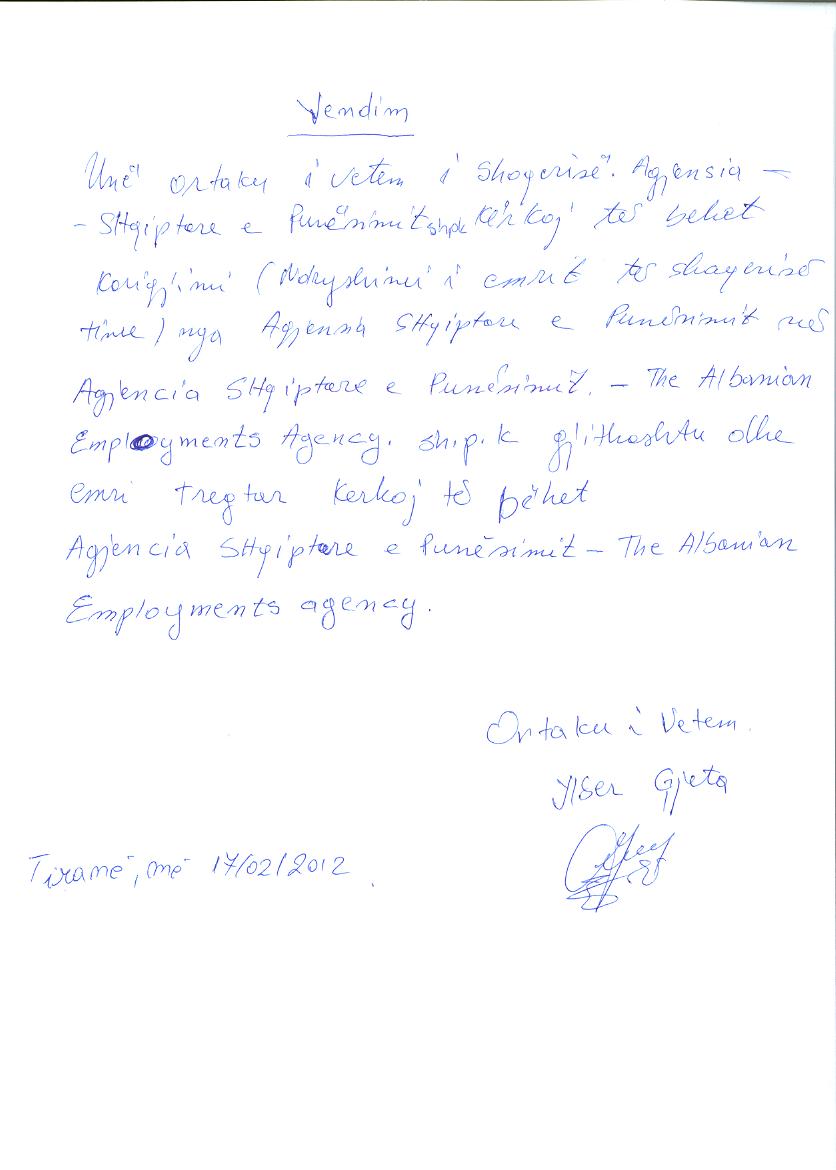 Vendim
Unë ortaku i vetem i shoqerisë. Agjensia –
– SHqiptare e Punësimit shpk Kërkoj të behet
korigjimi (Ndryshimi i emrit të shoqerisë
time) nga Agjensia SHqiptare e Punësimit në
Agjencia SHqiptare e Punësimit. – The Albanian
Employments Agency. sh.p.k gjithashtu dhe
emri tregtar kerkoj të bëhet
Agjencia SHqiptare e Punësimit – The Albanian
Employments agency.
Ortaku i Vetem.
Ylber Gjeta
Tiranë, më 17/02/2012.